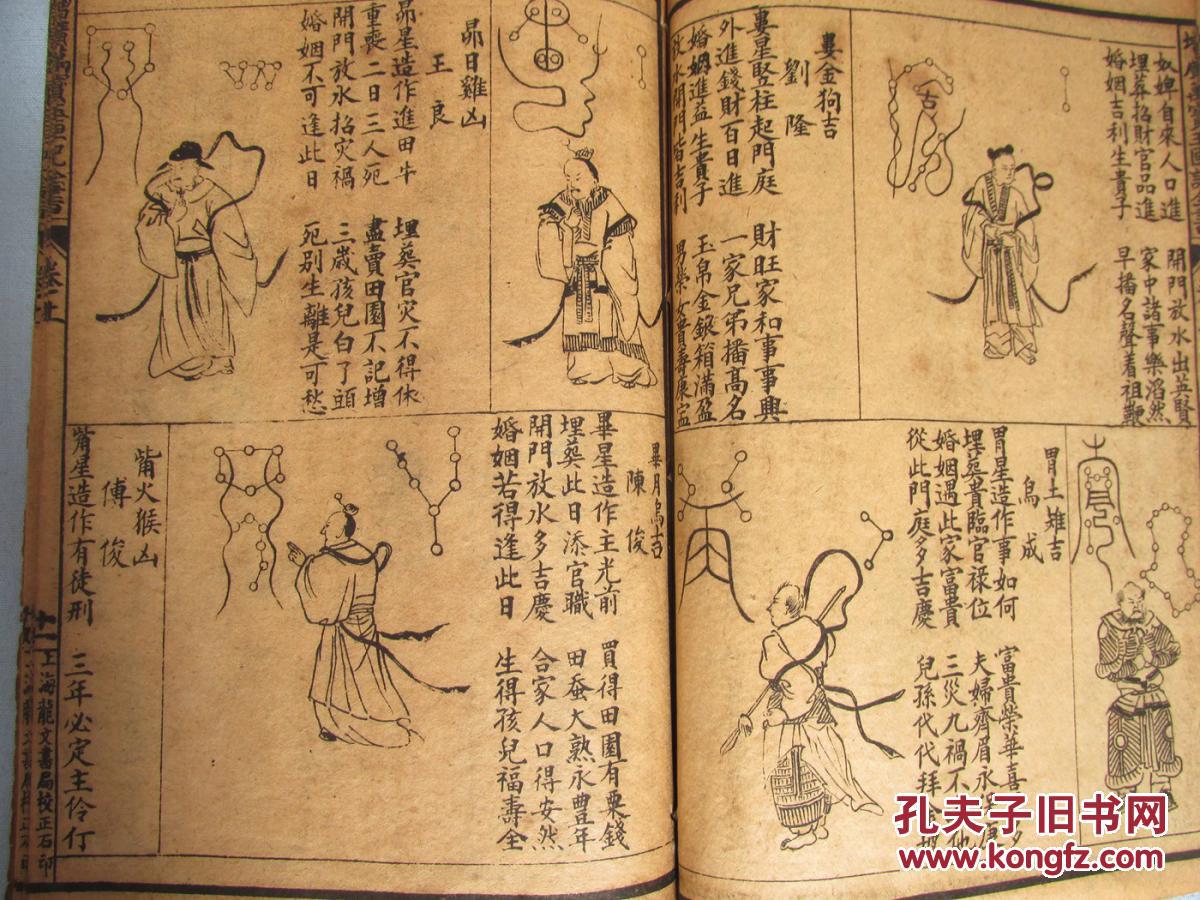 奴婢自來人口進　開門放水出英賢
埋葬招財官品進　家中諸事樂滔然
婚姻吉利生貴子　早播名聲着祖鞭
婁金狗吉
劉隆
婁星竪柱起門庭　財旺家和事事興
外進錢財百日進　一家兄弟播高名
婚姻進益生貴子　玉帛金銀箱滿盈
放水開門皆吉利　男榮女貴壽康寍
古
胃土雉吉
烏成
胃星造作事如何　富貴榮華喜
埋葬貴臨官祿位　三災九禍不
婚姻遇此家富貴　夫婦齊眉永
從此門庭多吉慶　兒孫代代拜
昴日雞凶
王良
昴星造作進田牛　埋葬官灾不得休
重喪二日三人死　盡賣田園不記增
開門放水招灾禍　三歲孩兒白了頭
婚姻不可逢此日　死別生離是可愁
畢月烏吉
陳俊
畢星造作主光前　買得田園有粟錢
埋葬此日添官職　田蚕大熟永豊年
開門放水多吉慶　合家人口得安然
婚姻若得逢此日　生得孩兒福壽全
觜火猴凶
傅俊
觜星造作有徒刑　三年必定主伶仃
卷一
十一
上海龍文書局校正石印
孔夫子旧书网
www.kongfz.com